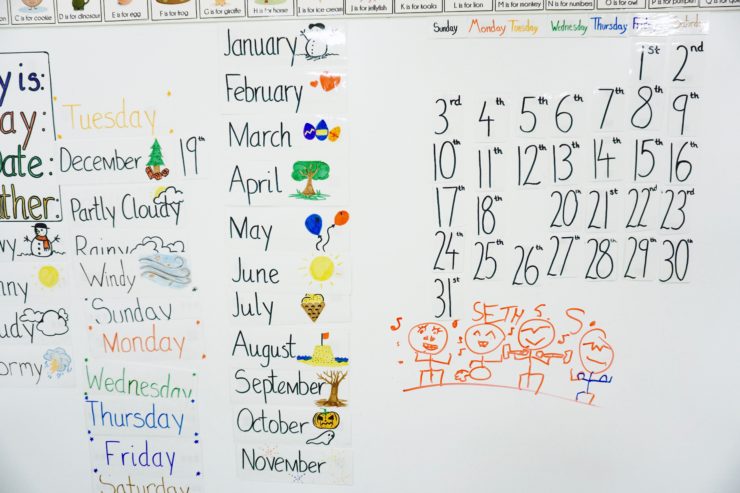 C is for cookie
D is for dinosaur
E is for egg
F is for frog
G is for giraffe
H is for home
I is for ice cream
J is for jellyfish
K is for koala
L is for lion
M is for monkey
N is for numbers
O is for owl
y is:
ay:
ate:
ther:
Tuesday
December 19th
Partly Cloudy
Rainy
Windy
Sunday
Monday
Wednesday
Thursday
Friday
Saturday
wy
nny
udy
ormy
January
February
March
April
May
June
July
August
September
October
November
Sunday Monday Tuesday Wednesday Thursday Friday Saturday
1st 2nd
3rd 4th 5th 6th 7th 8th 9th
10th 11th 12th 13th 14th 15th 16th
17th 18th 20th 21st 22nd 23rd
24th 25th 26th 27th 28th 29th 30th
31st
SETH S. S.